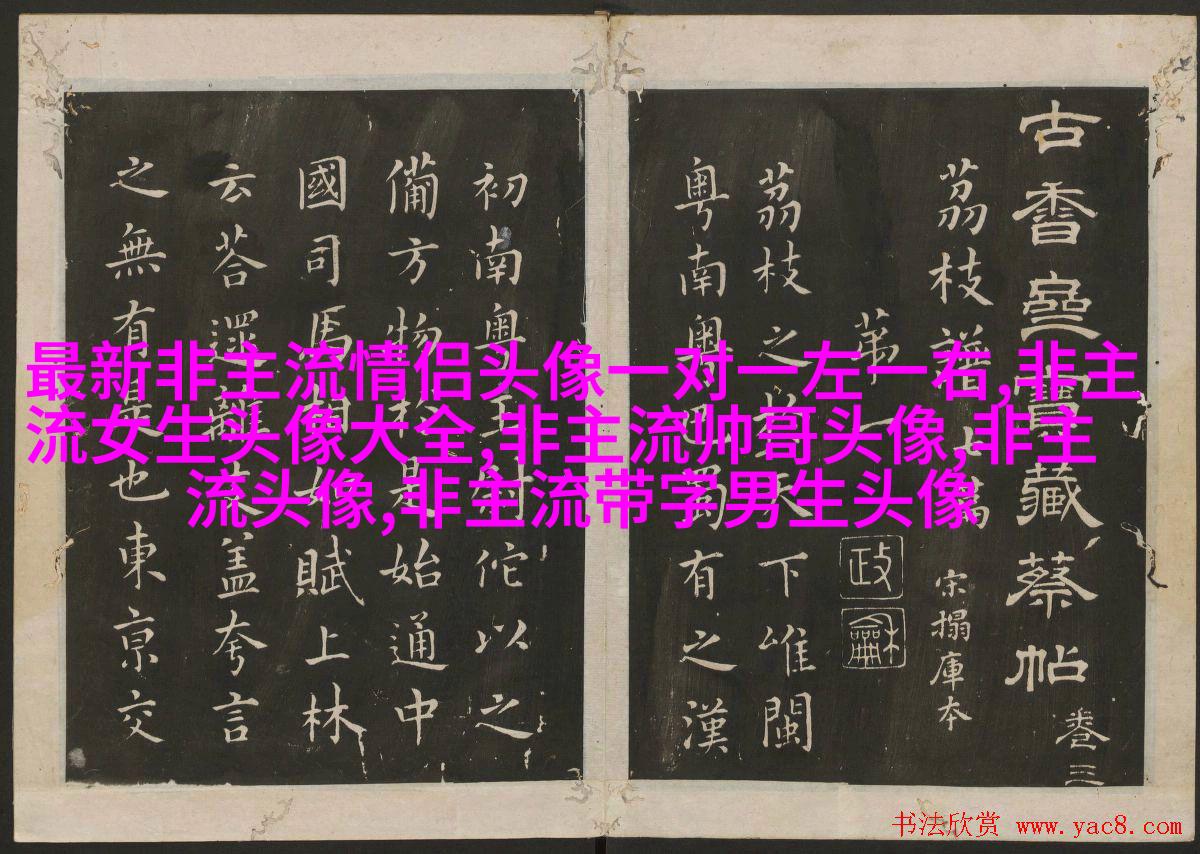 最新非主流情侣头像一对一左一右,非主
流女生头像大全,非主流帅哥头像,非主
流头像,非主流带字男生头像
古香齋寶藏蔡帖 卷三
茘枝譜七篇 宋搨庫本
苐一
政龢
茘枝之於天下唯閩
粵南粵巴蜀有之漢
初南粵王尉佗以之
備方物於是始通中
國司馬相如賦上林
云荅遝離支盖夸言
之無有是也東京交
书法欣赏 www.yac8.com